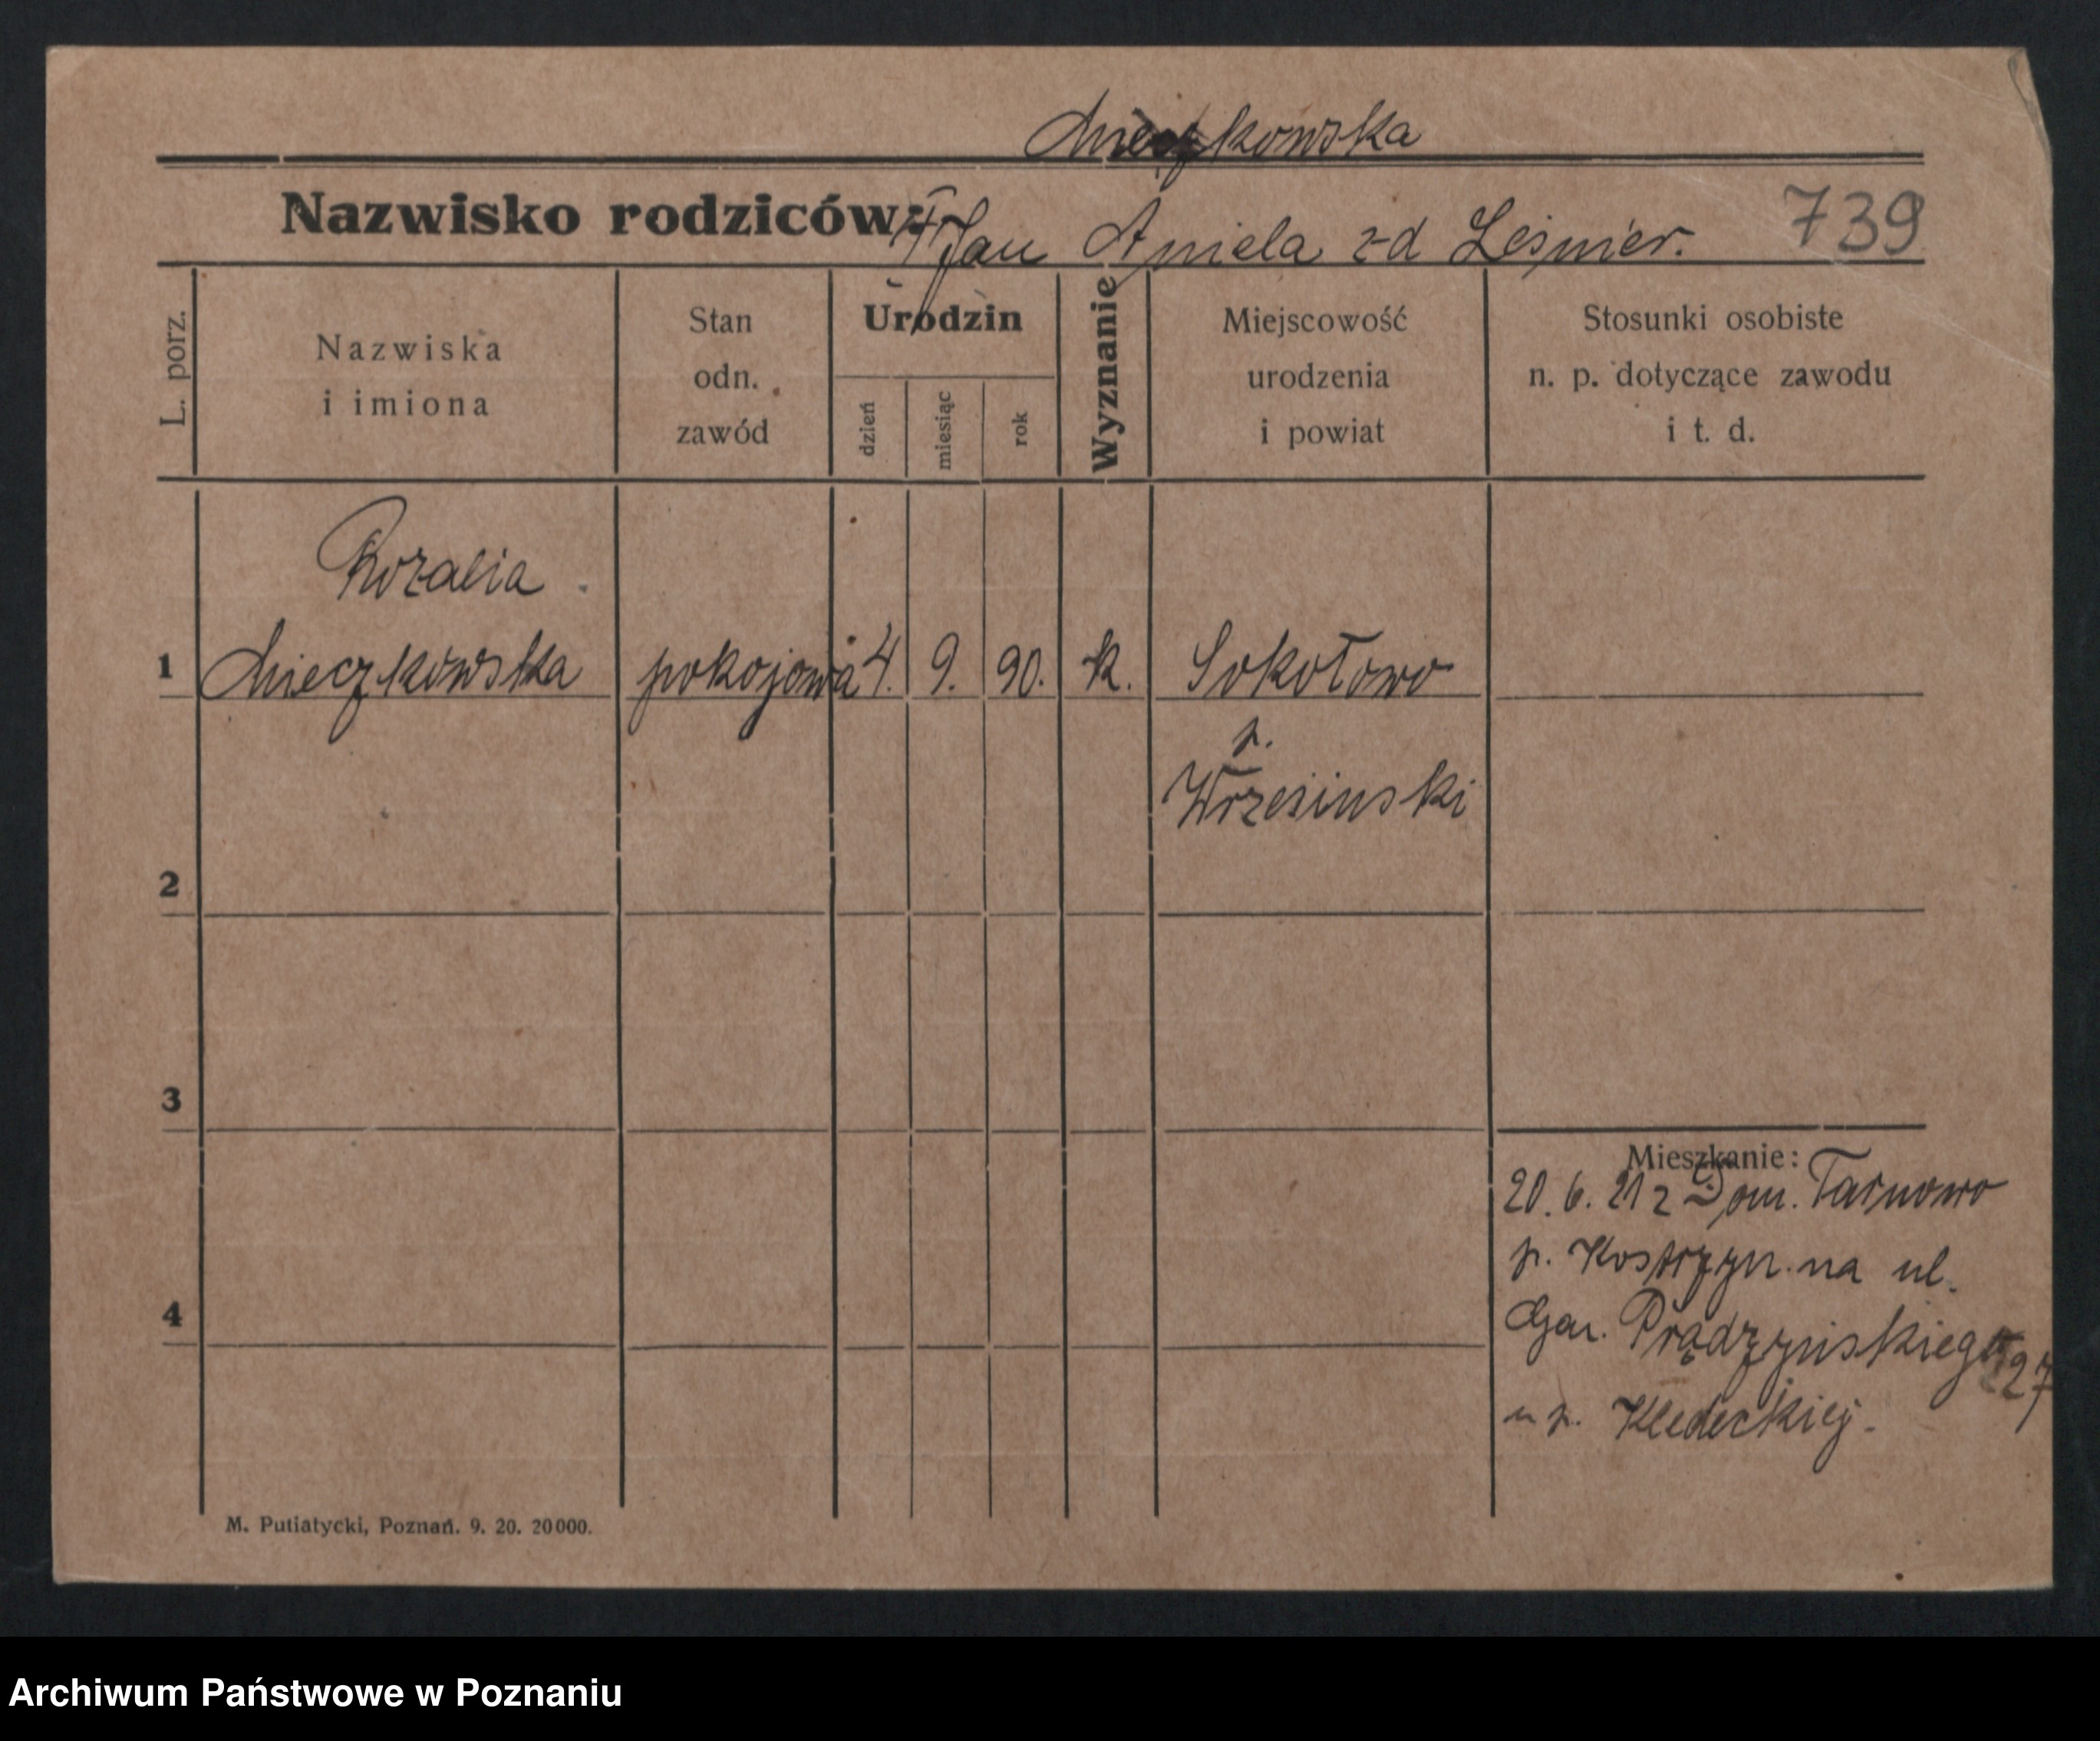 Mieczkowska
Nazwisko rodziców: Jan Aniela z d Leśnier. 739
L. porz.
Nazwiska
i imiona
Stan
odn.
zawód
Urodzin
dzień
miesiąc
rok
Wyznanie
Miejscowość
urodzenia
i powiat
Stosunki osobiste
n. p. dotyczące zawodu
i t. d.
Rozalia
1 Mieczkowska pokojowa 4. 9. 90. k. Sokołowo
p.
Wrzesinski
2
3
4
Mieszkanie:
20. 6. 21 z Dom. Tarnowo
p. Kostrzyn. na ul.
Prądzyńskiego 27
u p. Kledeckiej.
M. Putiatycki, Poznań. 9. 20. 20000.
Archiwum Państwowe w Poznaniu